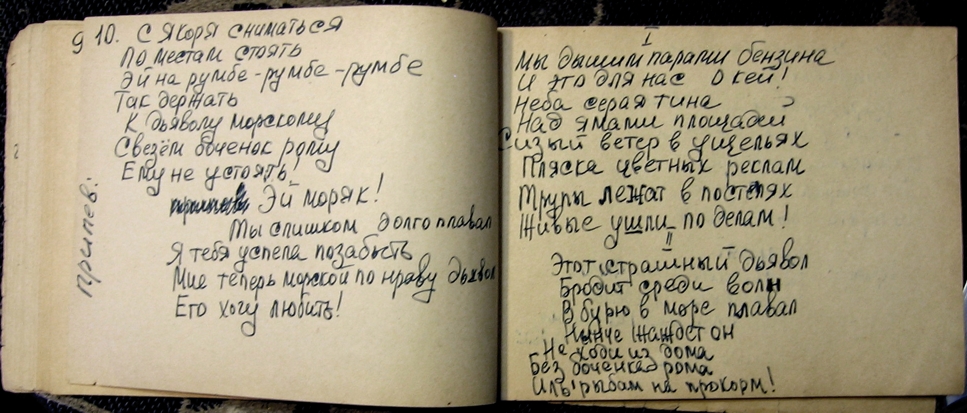 9 10. С ЯКОРЯ СНИМАТЬСЯ
По местам стоять
Эй на румбе-румбе-румбе
Так держать
К дьяволу морскому
Свезём боченок рому
Ему не устоять!
припев: Эй моряк!
Ты слишком долго плавал
Я тебя успела позабыть
Мне теперь морской по нраву дьявол
Его хочу любить!
I
Мы дышим парами бензина
И это для нас О кей!
Неба серая тина
Над ямами площадей
Сизый ветер в ущельях
Пляска цветных реклам
Трупы лежат в постелях
Живые ушли по делам!
II
Этот страшный дьявол
Бродит среди волн
В бурю в море плавал
Нынче жаждет он
Не ходи из дома
Без боченка рома
Иль рыбам на прокорм!